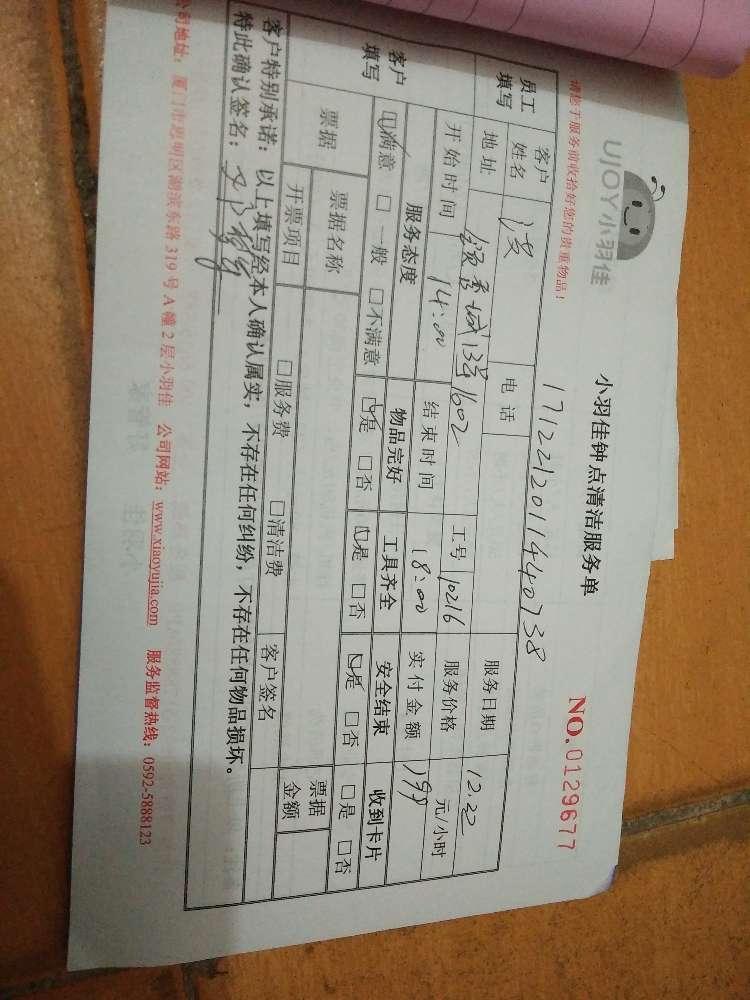 UJOY小羽佳
小羽佳钟点清洁服务单
NO.0129677
请您于服务前收拾好您的贵重物品！
1712212011440738
员工填写
客户姓名
电话
服务日期 12.22
地址 1602
工号 10216
服务价格 元/小时
开始时间 14:00
结束时间 18:00
实付金额 199
客户填写
服务态度 物品完好 工具齐全 安全结束 收到卡片
☑满意 □一般 □不满意 ☑是 □否 ☑是 □否 ☑是 □否 □是 □否
票据
票据名称
票据金额
开票项目 □服务费 □清洁费 客户签名
客户特别承诺：以上填写经本人确认属实，不存在任何纠纷，不存在任何物品损坏。
特此确认签名：
公司地址：厦门市思明区湖滨东路319号A幢2层小羽佳 公司网站：www.xiaoyujia.com 服务监督热线：0592-5888123